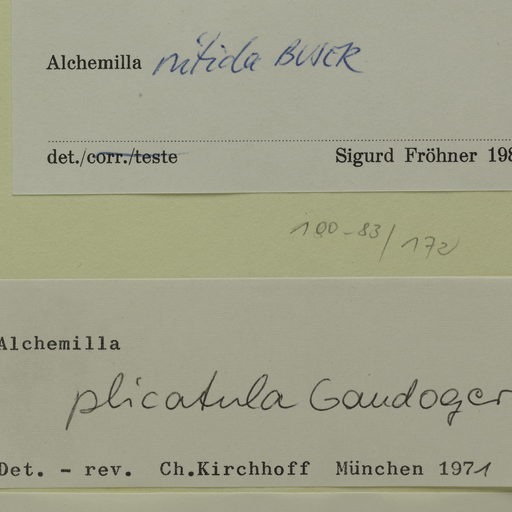 Alchemilla nitida BUSER
det./corr./teste Sigurd Fröhner 198
100-83/172
Alchemilla
plicatula Gandoger
Det. - rev. Ch.Kirchhoff München 1971